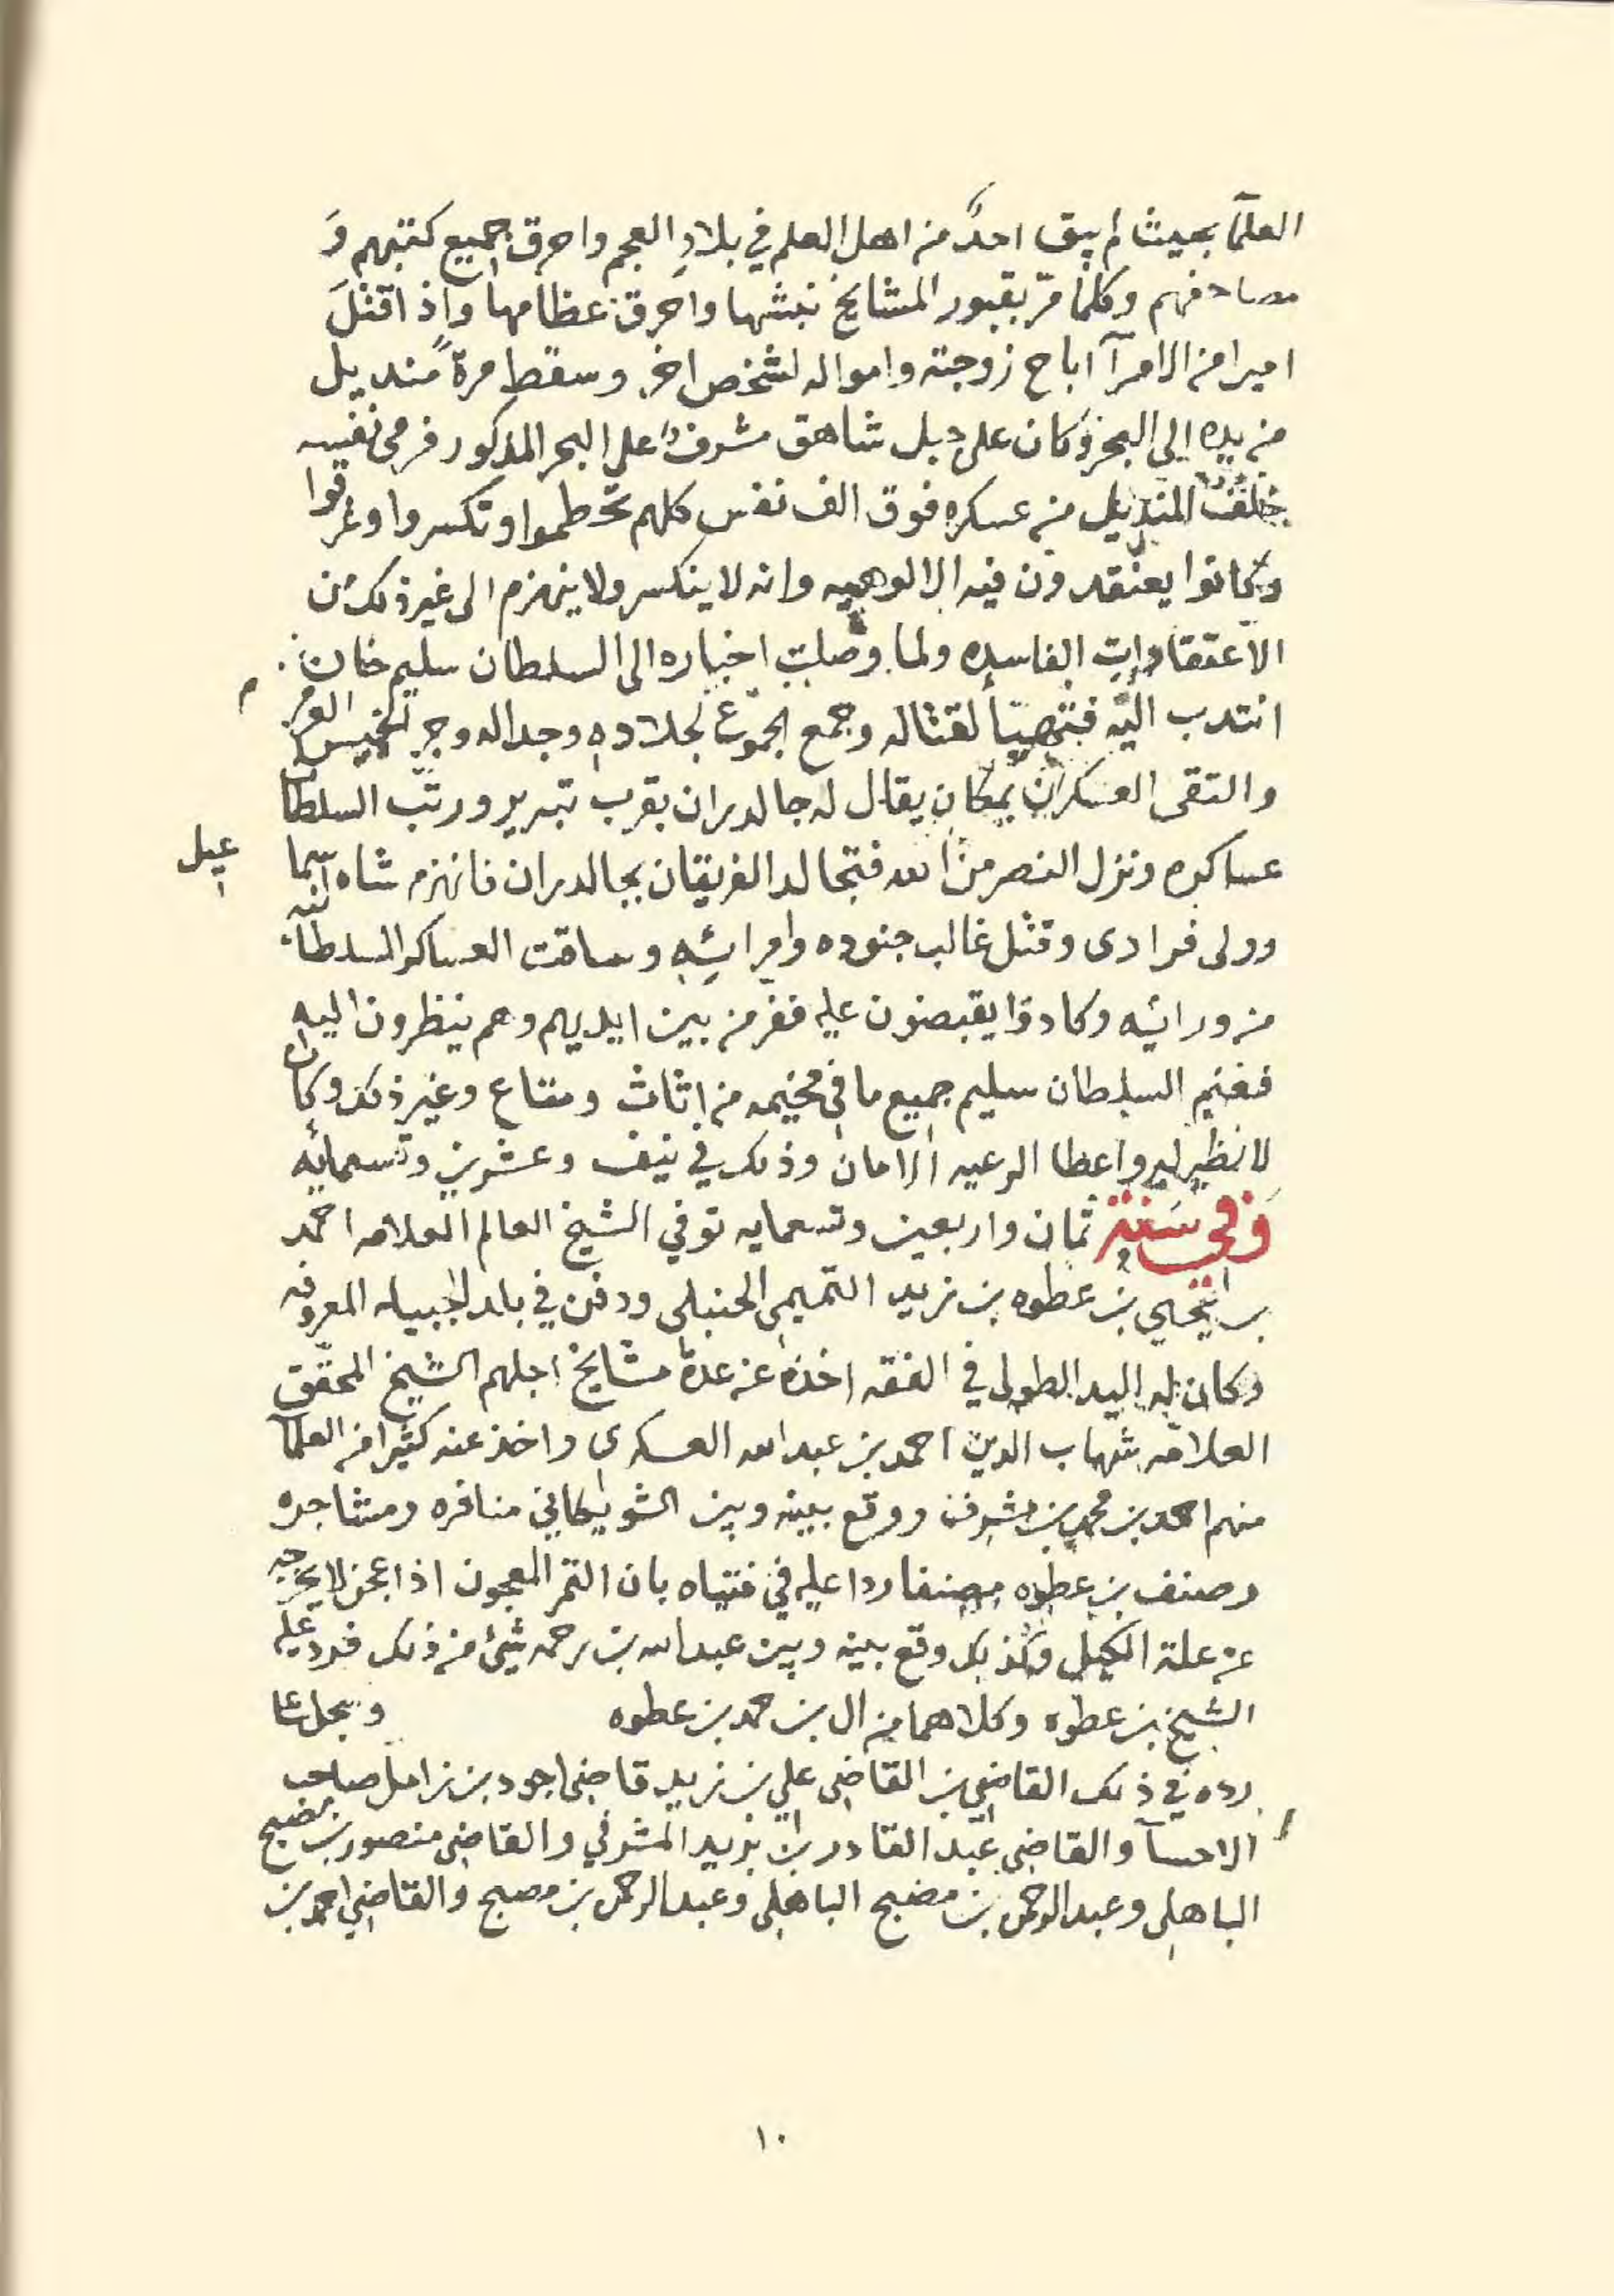 العلمآ بحيث لم يبق احدٌ من اهل العلم في بلادِ العجم واحرق جميع كتبهم وَ
مصاحفهم وكلما مرّ بقبور المشايخ نبشها واحرق عظامها واذا قتلَ
اميرا من الامرآ اباح زوجته وامواله لشخص اخر وسقط مرةً منديل
من يده الى البحر وكان على جبل شاهق مشرفٌ على البحر المذكور فرمى نفسه
خلف المنديل من عسكره فوق الف نفس كلهم تحطموا وتكسروا وغرقوا
وكانوا يعتقدون فيه الالوهيه وانه لا ينكسر ولا ينهزم الى غير ذلك من
الاعتقادات الفاسده ولما وصلت اخباره الى السلطان سليم خان
انتدب اليه فتهيأ لقتاله وجمع الجموع لجلاده وجداله وجر الخميس العرمرم
والتقى العسكران بمكان يقال له جالدران بقرب تبريز ورتّب السلطان
عساكره ونزل النصر من الله فتجالد الفريقان بجالدران فانهزم شاه اسماعيل
وولى فرادى وقتل غالب جنوده وامرائه وساقت العساكر السلطانيه
من ورائه وكادوا يقبضون عليه ففر من بين ايديهم وهم ينظرون اليه
فغنم السلطان سليم جميع ما في مخيمه من اثاث ومتاع وغير ذلك وكان
لا نظير له واعطا الرعيه الامان وذلك في نيف وعشرين وتسعمائه
وَفي سَنَة ثمان واربعين وتسعمايه توفي الشيخ العالم العلامه احمد
بن يحيي بن عطوه بن زيد التميمي الحنبلي ودفن في بلد الجبيله المعروفه
وكان له اليد الطولى في الفقه اخذه عن عدة مشايخ اجلهم الشيخ المحقق
العلامه شهاب الدين احمد بن عبدالله العسكري واخذ عنه كثيرا من العلمآ
منهم احمد بن محمد بن مشرف ووقع بينه وبين الشويكاني منافره ومشاجره
وصنف بن عطوه مصنفا ردا عليه في فتياه بان التمر المعجون اذا عجن لا يخرجه
عن علة الكيل وكذلك وقع بينه وبين عبدالله بن رحمه شيئ من ذلك فرد عليه
الشيخ بن عطوه وكلاهما من ال بن حمد بن عطوه وسجل عا
رده في ذلك القاضي بن القاضي علي بن زيد قاضي اجود بن زامل صاحب
الاحسآ والقاضي عبد القادر بن بريد المشرفي والقاضي منصور بن مصبح
الباهلي وعبدالرحمن بن مصبح الباهلي وعبدالرحمن بن مصبح والقاضي احمد بن
١٠